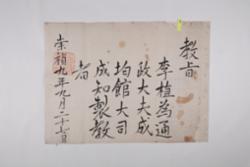 教旨
李植為通
政大夫成
均館大司
成知製敎
者
崇禎九年九月二十一日